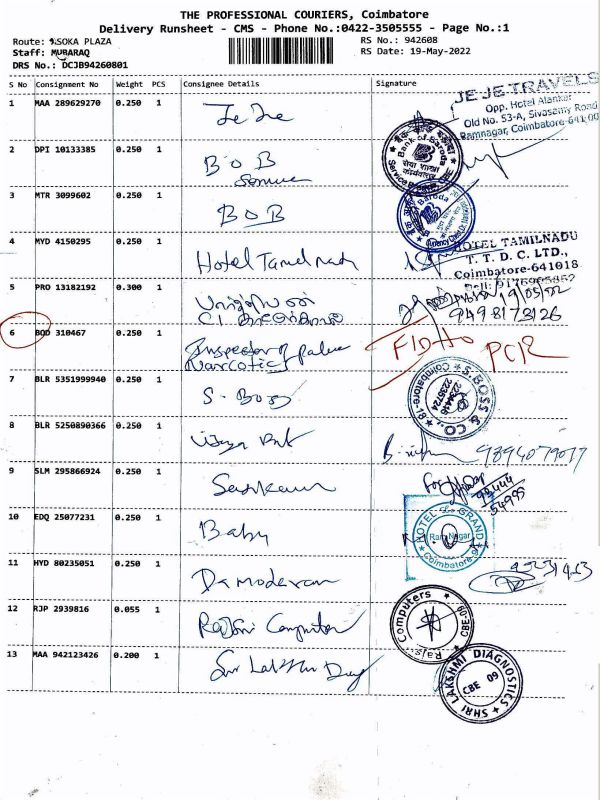 THE PROFESSIONAL COURIERS, Coimbatore
Delivery Runsheet - CMS - Phone No.:0422-3505555 - Page No.:1
Route: ASOKA PLAZA
RS No.: 942608
Staff: MUBARAQ
RS Date: 19-May-2022
DRS No.: DCJB94260801
S No Consignment No Weight PCS Consignee Details Signature
1 MAA 289629270 0.250 1 Je Je
JE JE TRAVELS
Opp. Hotel Alankar
Old No. 53-A, Sivasamy Road
Ramnagar, Coimbatore-641 00
2 DPI 10133385 0.250 1 BOB
Bank of Baroda
सेवा शाखा
3 MTR 3099602 0.250 1 BOB
Baroda
4 MYD 4150295 0.250 1 Hotel Tamilnadu
HOTEL TAMILNADU
T. T. D. C. LTD.,
Coimbatore-641018
5 PRO 13182192 0.300 1
19/05/22
9498173126
6 BOD 310467 0.250 1 Inspector of Police
Narcotics
PCR
7 BLR 5351999940 0.250 1 S. Boss
S. BOSS & CO.,
Coimbatore-18
8 BLR 5250890366 0.250 1 Vijaya
9 SLM 295866924 0.250 1
For
10 EDQ 25077231 0.250 1 Baby
HOTEL GRAND
Ram Nagar
Coimbatore-9
11 HYD 80235051 0.250 1 Damodaran
12 RJP 2939816 0.055 1 Rajsri Computer
Computers
CBE-09
13 MAA 942123426 0.200 1
SHRI LAKSHMI DIAGNOSTICS
CBE 09